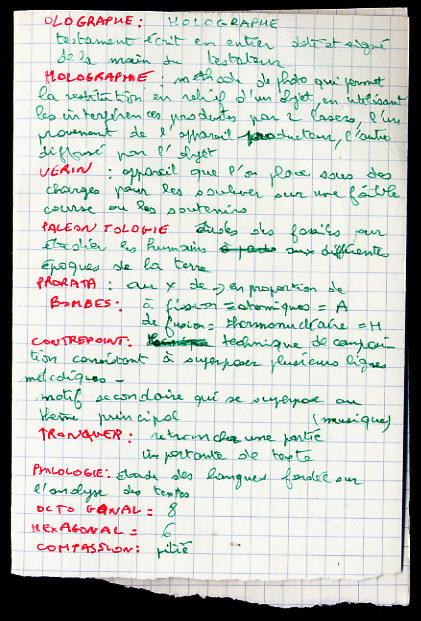 OLOGRAPHE : HOLOGRAPHE
testament écrit en entier daté et signé
de la main du testateur
HOLOGRAPHIE : méthode de photo qui permet
la restitution en relief d'un objet, en utilisant
les interférences produites par 2 lasers, l'un
provenant de l'appareil producteur, l'autre
diffusé par l'objet
VERIN : appareil que l'on place sous des
charges pour les soulever sur une faible
course ou les soutenir
PALEONTOLOGIE études des fossiles pour
étudier les humains aux différentes
époques de la terre
PRORATA : au x de → en proportion de
BOMBES : à fission = atomiques = A
de fusion = thermonucléaire = H
CONTREPOINT : technique de composi-
tion consistant à superposer plusieurs lignes
mélodiques -
motif secondaire qui se superpose au
thème principal (musique)
TRONQUER : retrancher une partie
importante de texte
PHILOLOGIE : étude des langues fondée sur
l'analyse des textes
OCTOGONAL = 8
HEXAGONAL = 6
COMPASSION : pitié